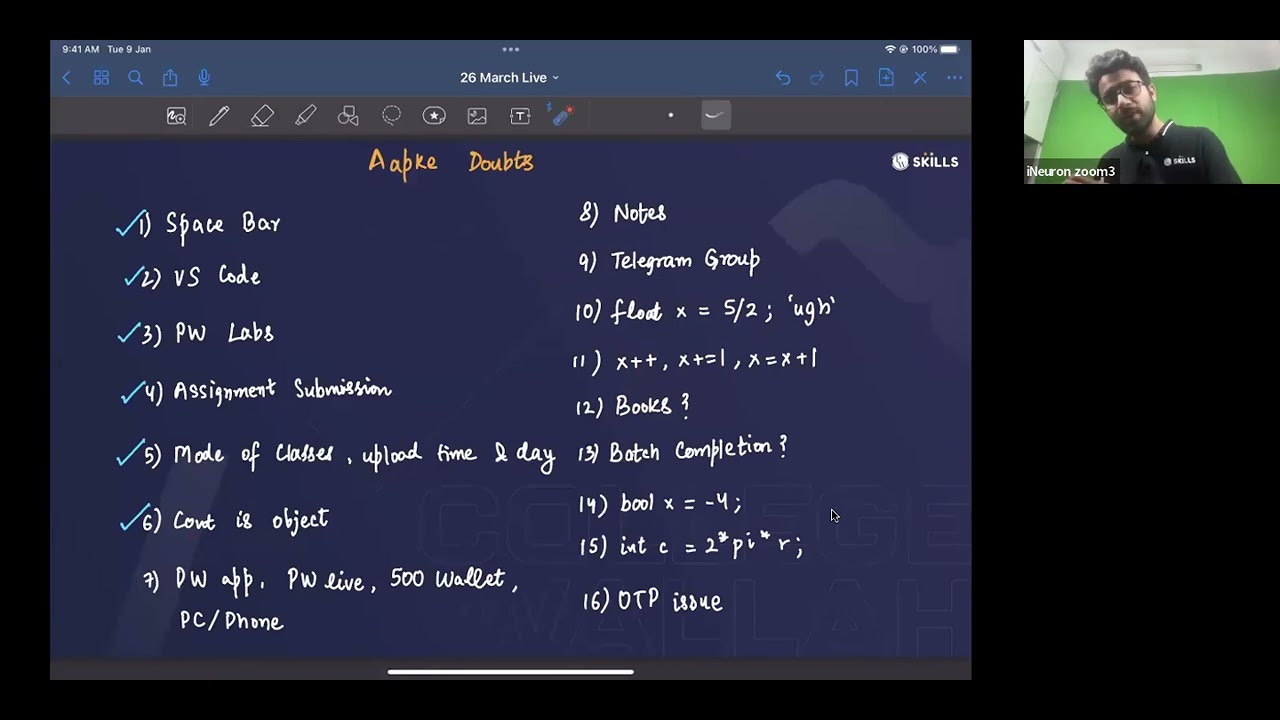 9:41 AM Tue 9 Jan
100%
26 March Live
Aapke Doubts
SKILLS
1) Space Bar
2) VS Code
3) PW Labs
4) Assignment Submission
5) Mode of Classes, upload time & day
6) Cout is object
7) PW app, PW live, 500 Wallet,
PC/Phone
8) Notes
9) Telegram Group
10) float x = 5/2; 'ugh'
11) x++, x+=1, x=x+1
12) Books?
13) Batch Completion?
14) bool x = -4;
15) int c = 2*pi*r;
16) OTP issue
COLLEGE
WALLAH
SKILLS
iNeuron zoom3